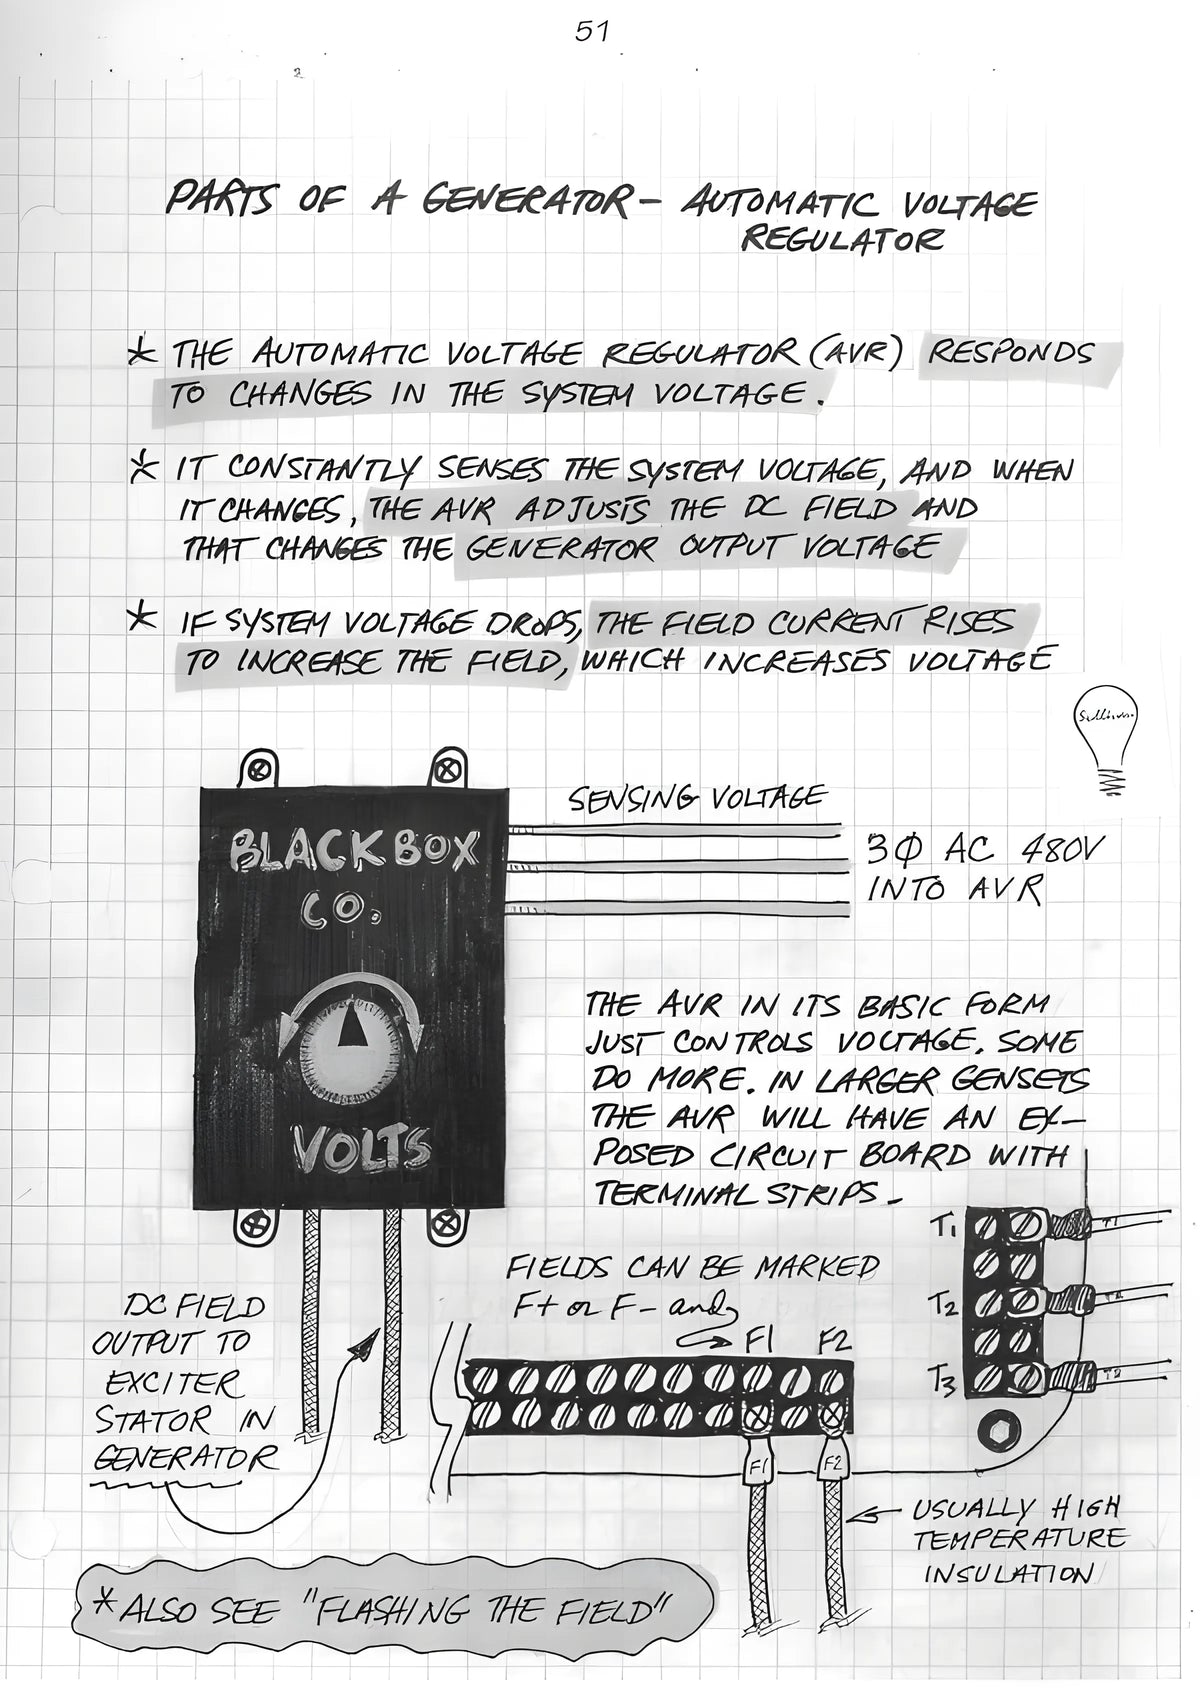 51
PARTS OF A GENERATOR - AUTOMATIC VOLTAGE
REGULATOR
* THE AUTOMATIC VOLTAGE REGULATOR (AVR) RESPONDS
TO CHANGES IN THE SYSTEM VOLTAGE.
* IT CONSTANTLY SENSES THE SYSTEM VOLTAGE, AND WHEN
IT CHANGES, THE AVR ADJUSTS THE DC FIELD AND
THAT CHANGES THE GENERATOR OUTPUT VOLTAGE
* IF SYSTEM VOLTAGE DROPS, THE FIELD CURRENT RISES
TO INCREASE THE FIELD, WHICH INCREASES VOLTAGE
Sullivan
BLACK BOX
CO.
VOLTS
SENSING VOLTAGE
3Φ AC 480V
INTO AVR
THE AVR IN ITS BASIC FORM
JUST CONTROLS VOLTAGE. SOME
DO MORE. IN LARGER GENSETS
THE AVR WILL HAVE AN EX-
POSED CIRCUIT BOARD WITH
TERMINAL STRIPS.
T1
T2
T3
FIELDS CAN BE MARKED
F+ or F- and
F1 F2
F1 F2
DC FIELD
OUTPUT TO
EXCITER
STATOR IN
GENERATOR
USUALLY HIGH
TEMPERATURE
INSULATION
*ALSO SEE "FLASHING THE FIELD"